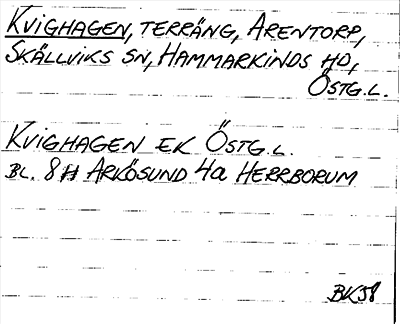 KVIGHAGEN, TERRÄNG, ARENTORP,
SKÄLLVIKS SN, HAMMARKINDS HD,
ÖSTG.L.
KVIGHAGEN EK ÖSTG.L.
BL. 8H ARKÖSUND 4a HERRBORUM
BK58